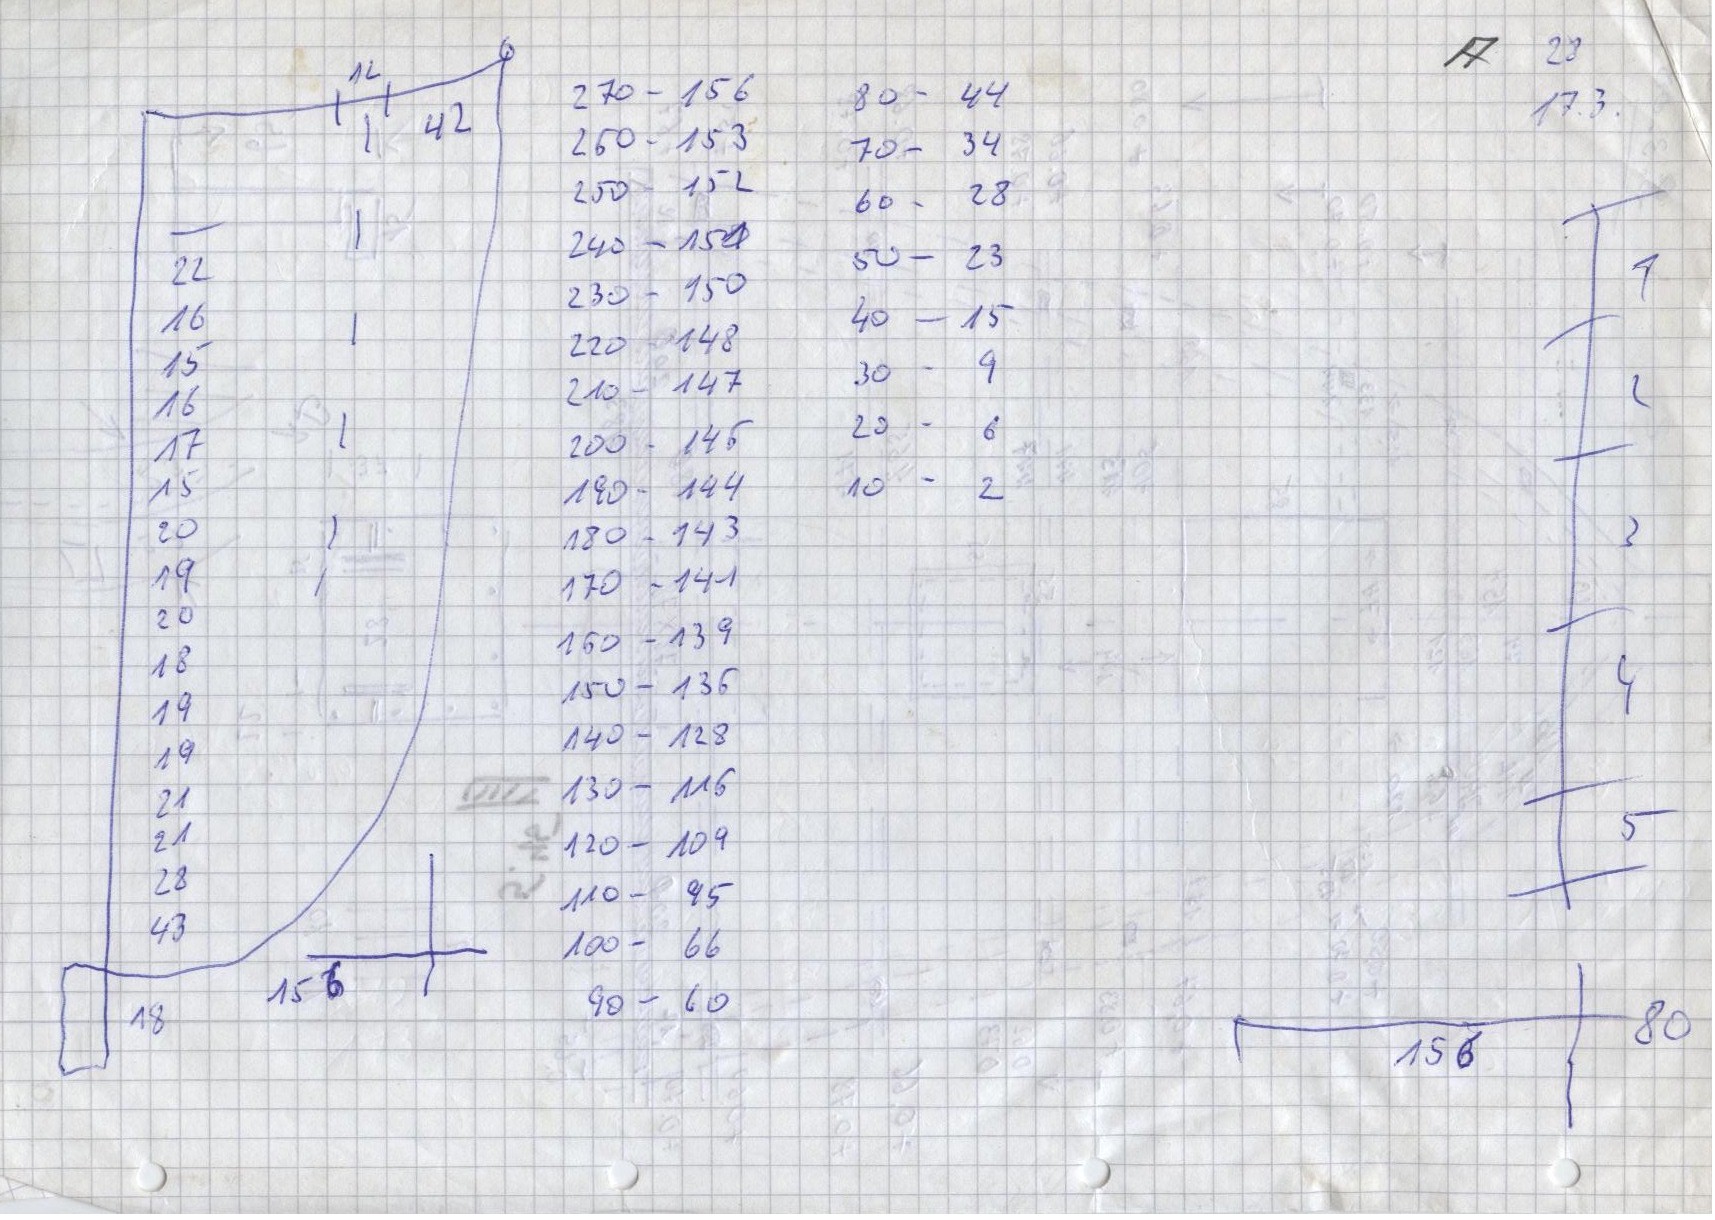 A 28
17.3.
12
42
22
16
15
16
17
15
20
19
20
18
19
19
21
21
28
43
18
156
270 - 156
260 - 153
250 - 152
240 - 151
230 - 150
220 - 148
210 - 147
200 - 146
190 - 144
180 - 143
170 - 141
160 - 139
150 - 136
140 - 128
130 - 116
120 - 109
110 - 95
100 - 66
90 - 60
80 - 44
70 - 34
60 - 28
50 - 23
40 - 15
30 - 9
20 - 6
10 - 2
1
2
3
4
5
156
80